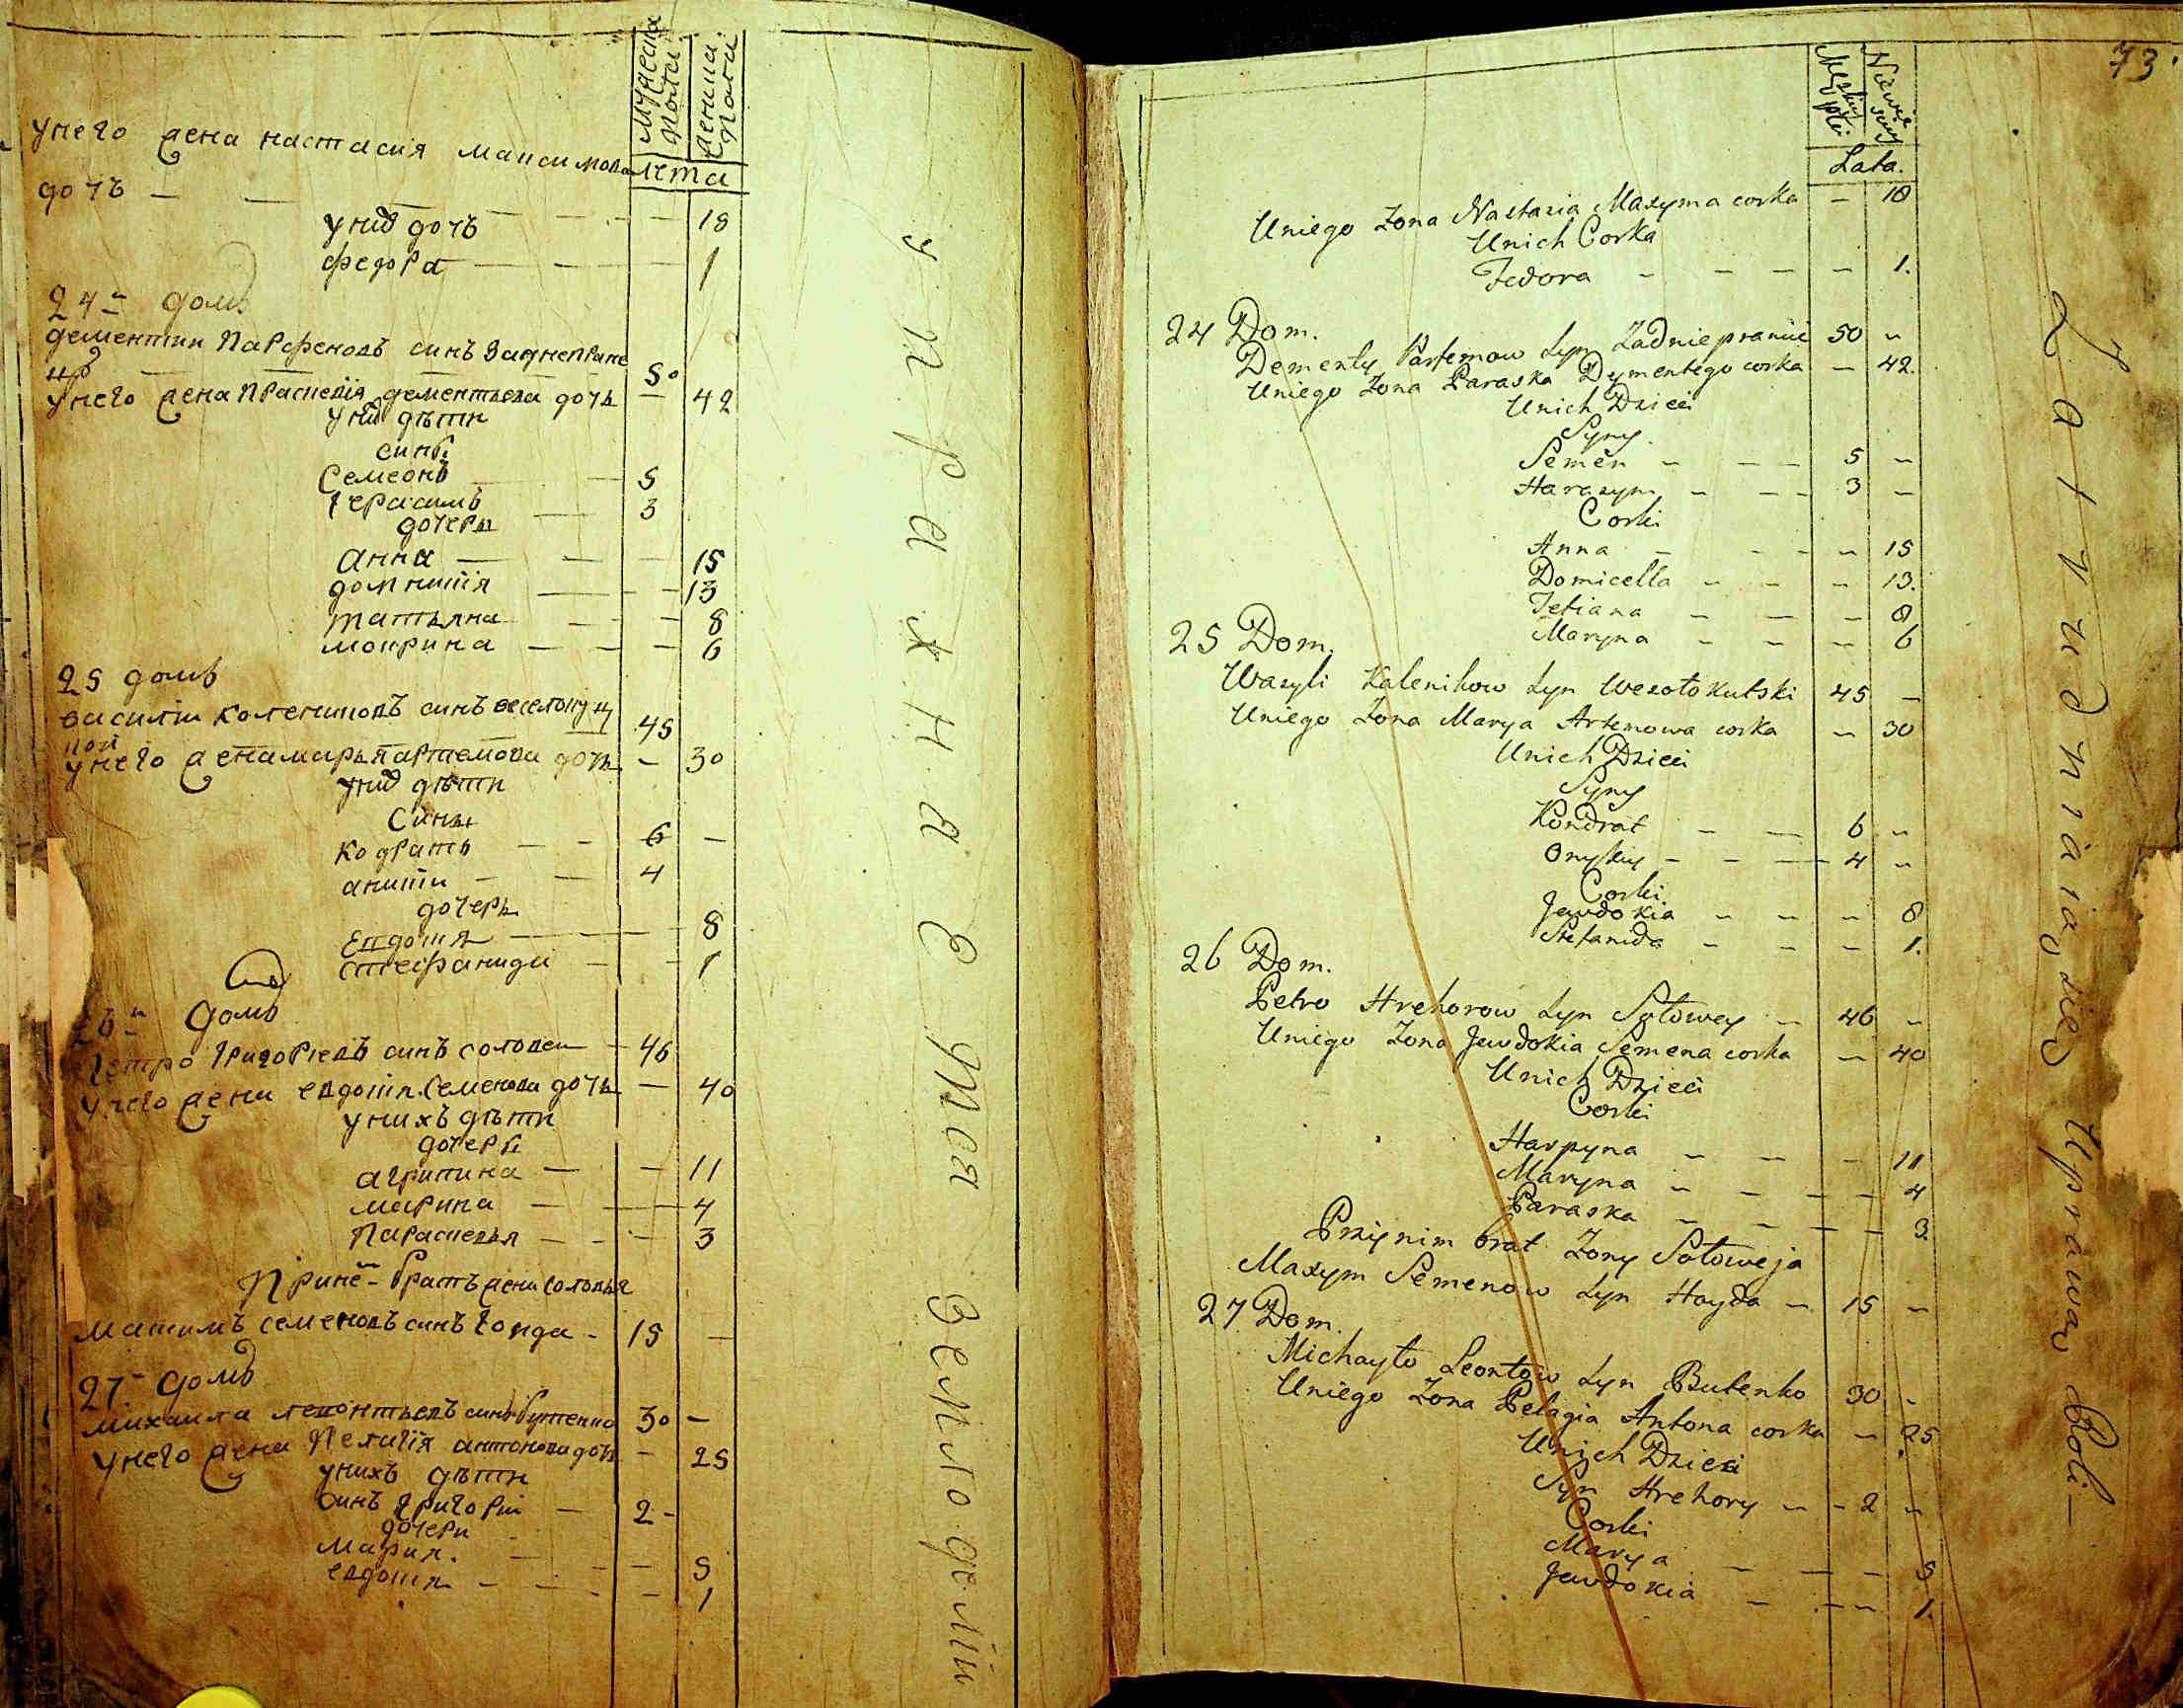 Мужеска пола
женша пола
Лета
унего жена настасия максимова
дочъ — 18
унихъ дочъ
федора — 1
24 домъ
дементии Парфеновъ синъ Заднепране
цъ — 50
унего жена Праскевия дементьева дочь — 42
унихъ дѣти
сины
Семеонъ — 5
Герасимъ — 3
дочеры
анна — 15
домникия — 13
татьяна — 8
мокрина — 6
25 домъ
василии Колениковъ синъ веселокуц
кой 45
унего жена марья артемова дочь — 30
унихъ дѣти
Сины
Кодратъ — 6 —
аникии — 4
дочеры
Евдокия — 8
стефанида — 1
26 домъ
Петро Григориевъ синъ соловеи — 46
унего жена евдокия Семенова дочь — 40
унихъ дѣти
дочеры
агрипина — 11
марина — 4
Параскевья — 3
При нем братъ жени соловья
Максимъ семеновъ синъ гоида - 15 —
27 домъ
михаила леонтьевъ синъ бутенко 30 —
унего жена Пелагия антонова дочь — 25
унихъ дѣти
синъ григории — 2 -
дочери
Мария — 5
евдокия — 1
упражнаетъся земледелии
73.
Męskiey płci
Niewie sciey
Lata.
Uniego Zona Nastazia Maxyma corka — 18
Unich Corka
Fedora — 1.
24 Dom.
Dementy Parfemow Syn Zadniepraniec 50 —
Uniego Zona Paraska Dymentego corka — 42.
Unich Dzieci
Syny
Semen — 5 —
Harasym — 3 —
Corki
Anna — 15
Domicella — 13.
Tetiana — 8
Maryna — 6
25 Dom.
Wasyli Kalenikow Syn Wesołokutski 45 —
Uniego Zona Marya Artemowa corka — 30
Unich Dzieci
Syny
Kondrat — 6 —
Onysky — 4 —
Corki
Jewdokia — 8
Stefanida — 1.
26 Dom.
Petro Hrehorow Syn Sołowey — 46 —
Uniego Zona Jewdokia Semena corka — 40
Unich Dzieci
Corki
Harpyna — 11
Maryna — 4
Paraska — 3
Przynim brat Zony Sołoweja
Maxym Semenow Syn Hayda — 15 —
27 Dom.
Michayło Leontow Syn Butenko 30 -
Uniego Zona Pelagia Antona corka — 25
Unich Dzieci
Syn Hrehory — 2 —
Corki
Marya — 5
Jewdokia — 1.
Zatrudniaią się Uprawą Roli —